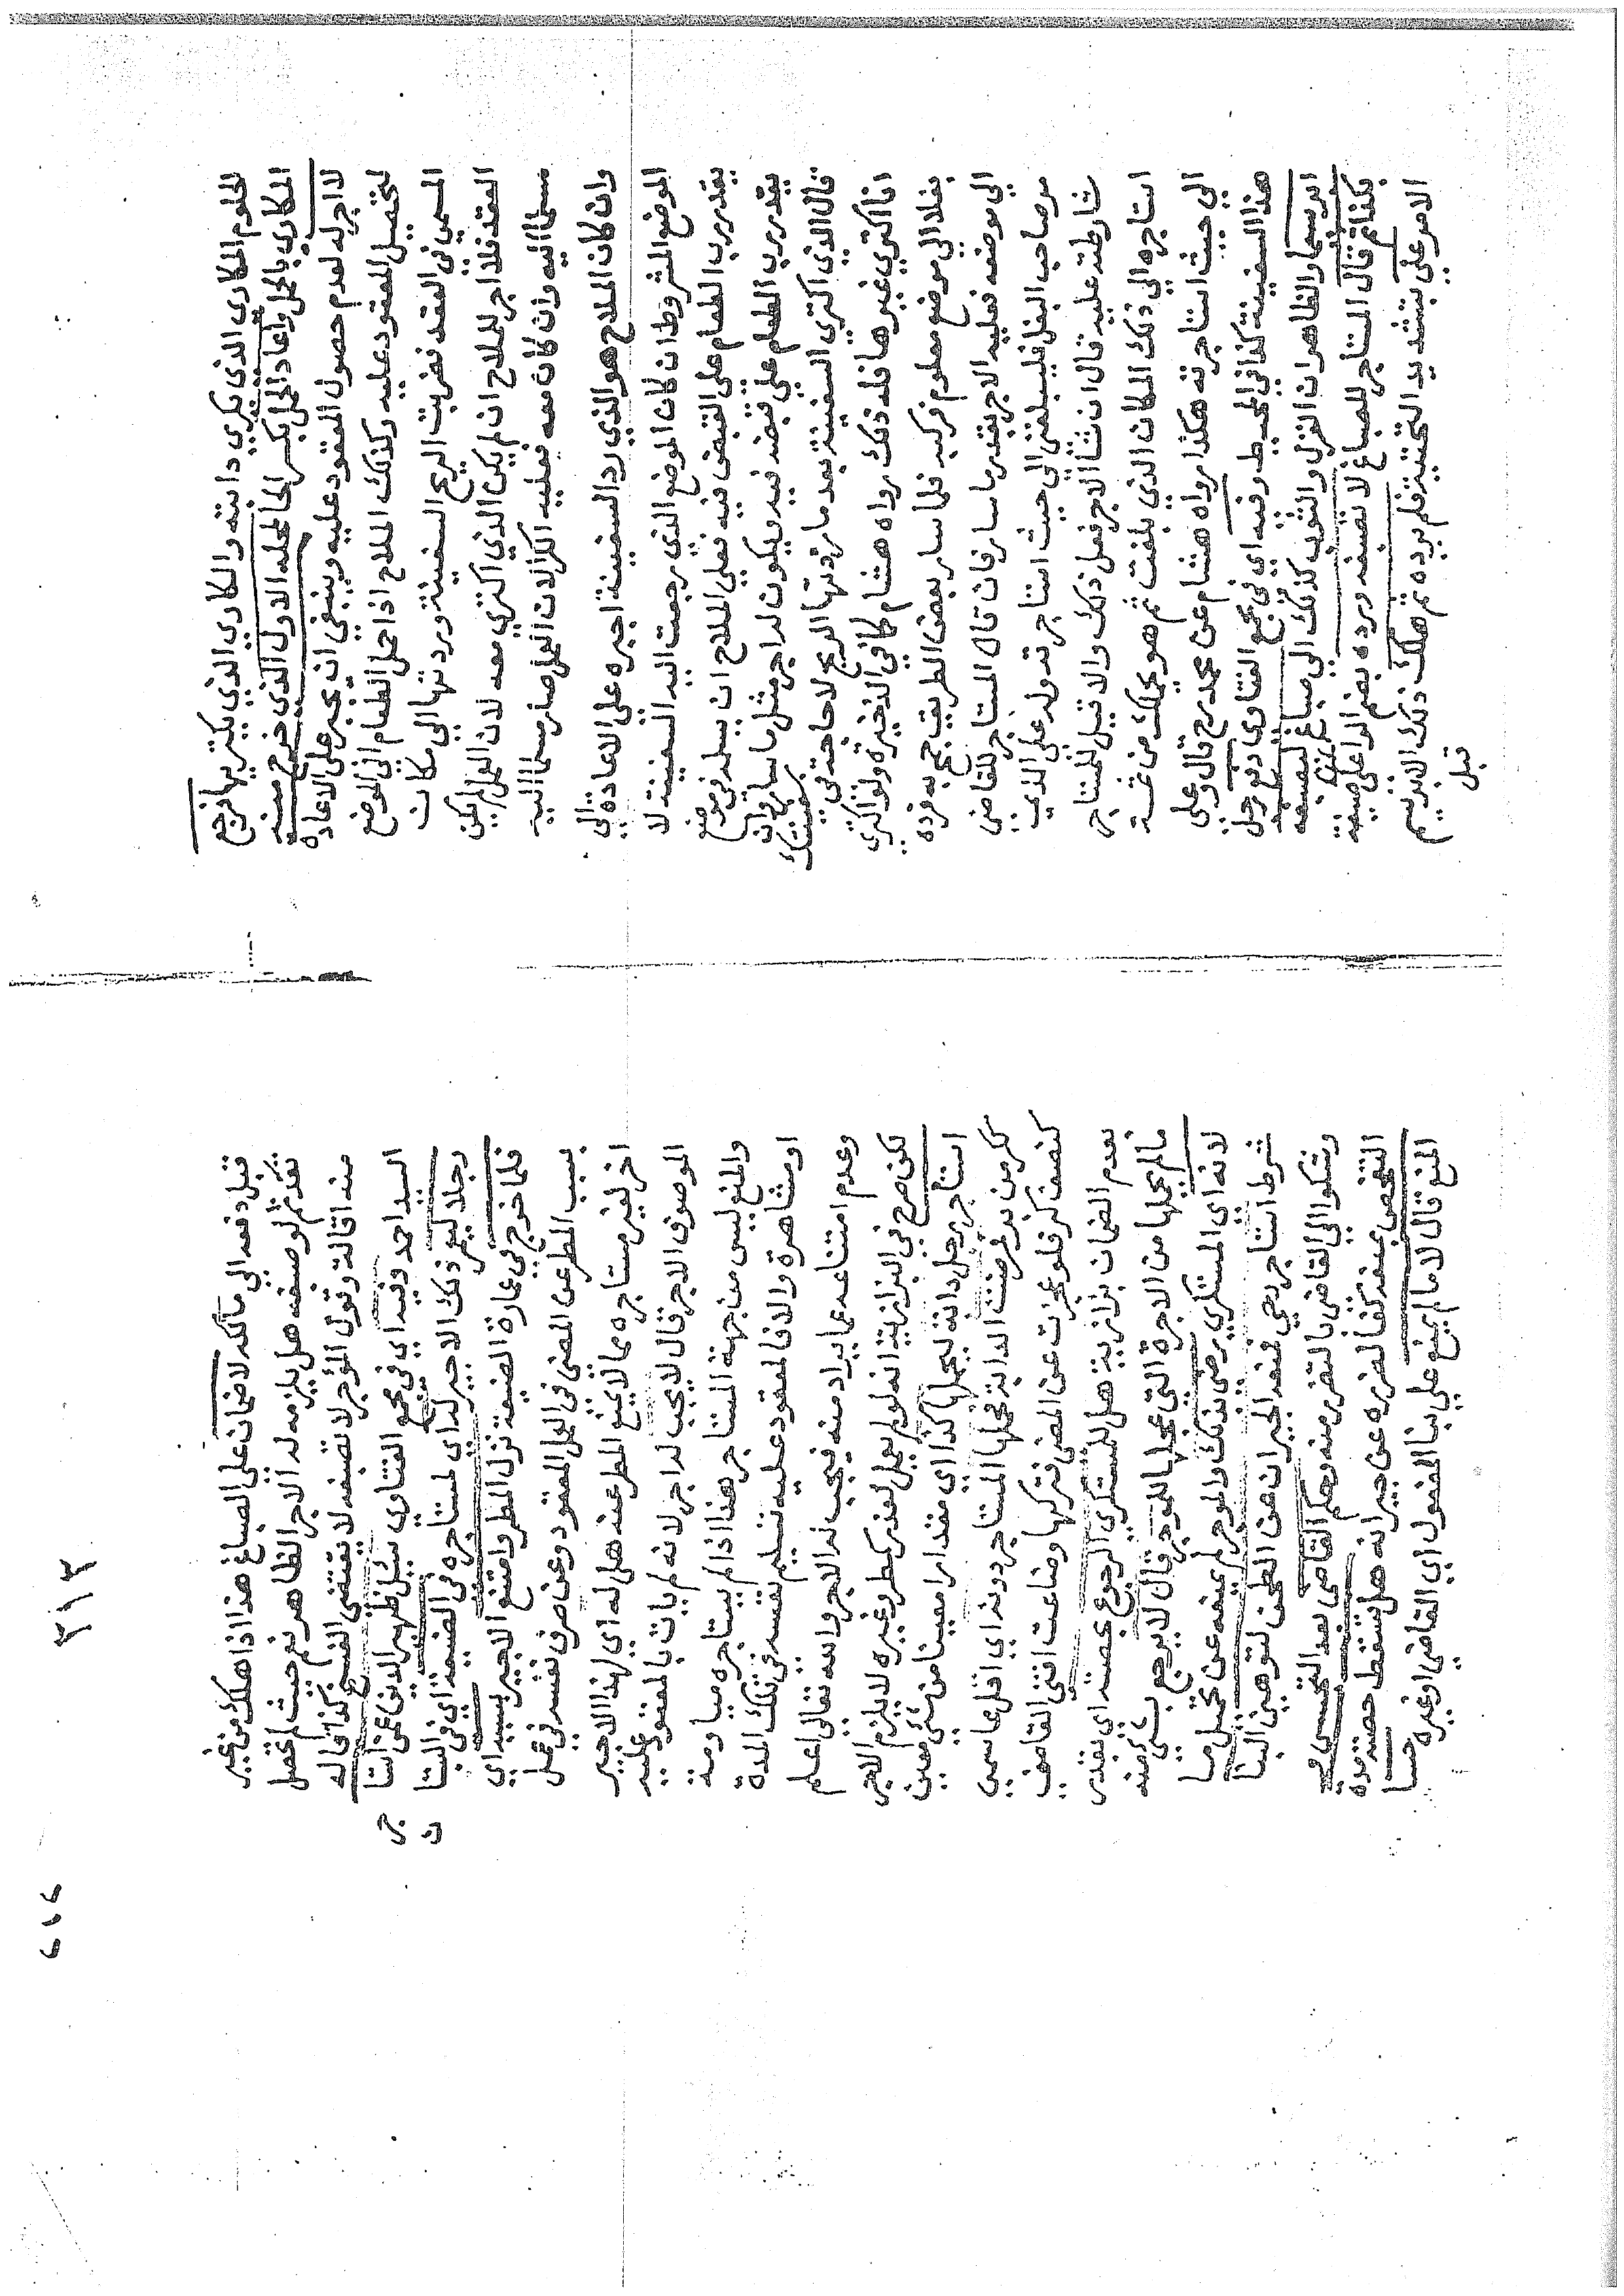 للحلوم المكارى الذي يكري دابته والكارى الذي يكتريها فرجع
المكاري بالحمل واعاد الحمل بكسر الحا لمحله الاول الذي خرج منه
لا اجر له لعدم حصول المعقود عليه وينبغي ان يجبر على الاعادة
لتحصيل المعقود عليه وكذلك الملاح اذا حمل الطعام الى الموضع
المسمى في العقد فضربت الريح السفينة وردتها الى مكان
العقد فلا اجر للملاح ان لم يكن الذي اكتري معه لان العمل لم يكن
مسلما اليه وان كان معه فعليه الكرا لان العمل صار مسلما اليه
وان كان الملاح هو الذي رد السفينة اجبره على الاعادة الى
الموضع المشروط ان كان الموضع الذي رجعت اليه السفينة لا
يقدر رب الطعام على القبض فيه فعلى الملاح ان يسلمه في موضع
يقدر رب الطعام على قبضه فيه ويكون له اجر مثل ما سار وان
قال الذي اكتري السفينة بعد ما ردتها الريح لا حاجة في سفينتك
انا اكتري غيرها فله ذلك رواه هشام كما في الذخيرة ولو اكترى
بغلا الي موضع معلوم فركبه فلما سار بعض الطريق جمح به فرده
الي موضعه فعليه الاجر بقدر ما سار فان قال المستاجر للقاضي
مر صاحب البغل فليبلغني الى حيث استاجرته وله علي الذي
شارطته عليه قال ان شا الاجر فعل ذلك والا قيل للمستاجر
استاجره الي ذلك المكان الذي بلغت ثم هو يحملك من ثمة
الي حيث استاجرته هكذا رواه هشام عن محمد رح قال وعلى
هذا السفينة كذا في المحيط وفيه اي في مجمع الفتاوى دفع رجل
ابريسما والظاهر ان الغزل والثوب كذلك الي صباغ ليصبغه
بكذا ثم قال المستاجر للصباغ لا تصبغه ورده بضم الرا على صيغة
الامر علي بتشديد التحتية فلم يرده ثم هلك ذلك الابريسم
قبل
٣١٣
قبل دفعه الي مالكه لا ضمان على الصباغ هذا اذا هلك من غير
تعد ثم لو صبغه هل يلزمه له الاجر الظاهر نعم حيث لم تحصل
منه اقالة وقول المؤجر لا تصبغه لا يقتضى الفسخ كذا قاله
السيد احمد وفيه اي في مجمع الفتاوى سئل ظهير الدين عمن استاجر
رجلا ليعمر ذلك الاجير له اي لمستاجره في الضيعة اي في البستان
فلما خرج في عمارة الضيعة نزل المطر وامتنع الاجير بسببه اي
بسبب المطر عن المضي في العمل المعقود وعن صرف نفسه في عمل
اخر لغير مستاجره مما لا يمنع المطر عنه هل له اي لهذا الاجير
الموصوف الاجر قال لا يجب له اجر لانه لم يات بالمعقود عليه
والمنع ليس من جهة المستاجر هذا اذا لم يستاجره مياومة
او مشاهرة والا فالمعقود عليه تسليم نفسه في تلك المدة
وعدم امتناعه عما يراد منه فيجب له الاجر والله تعالى اعلم
لكن صرح في البزازية انه لو لم يعمل لعذر كمطر وغيره لا يلزم الاجر
استاجر رجل دابة ليحملها كذا اي مقدارا معينا من شئ معين
كنصف كر فلو عجزت عن المضي فتركها وضاعت افتى القاضي
بعدم الضمان بزازية هل للمستكري الرجوع بحصته اي بقدر
ما لم يحملها من الاجرة التي عجلها للموجر قال لا يرجع بشئ منه
لانه اي المستكري رضي بذلك والموجر لم يمنعه عن تحميل ما
شرط استاجر رحي فمنعه الجيران عن الطحن لتوهين البنا
وشكوا الي القاضي بالتضرر منه وحكم القاضي بعد التحسس و
التفحص بمنعه كفا لضرره عن جيرانه هل تسقط حصة مدة
المنع قال لا ما لم يمنع علي بنا المفعول اي القاضي او غيره حسا